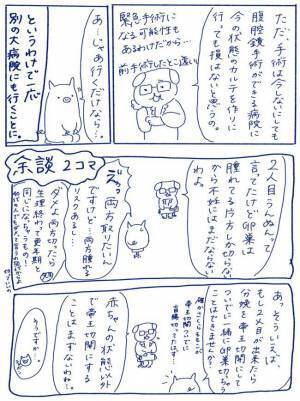 ただ、手術は今しないにしても
腹腔鏡手術ができる病院に
今の状態のカルテを作りに
行っても損はないと思うの。
緊急手術に
なる可能性も
あるわけだから…
前手術したとこ遠い
あーじゃあ行くだけなら…
というわけで一応
別の大病院にも行くことに。
余談2コマ
2人目うんぬんって
言ってたけど卵巣は
腫れてる片方しか切らない
から不妊にはまだならない
わよ。
えっ両方取りたいん
ですけど…両方腫れる
リスクあるし…
ダメよ両方切ったら
生理終わって更年期と
同じになっちゃうもの!
あっそういえば
もし2人目が出来たら
分娩を帝王切開にして
ついでに一緒に卵巣切っちゃう
ことはできませんか?
帝王切開ついでに
盲腸切ってたす…
赤ちゃんの状態以外
で帝王切開にする
ことはまずないわねー。
そうですか…。